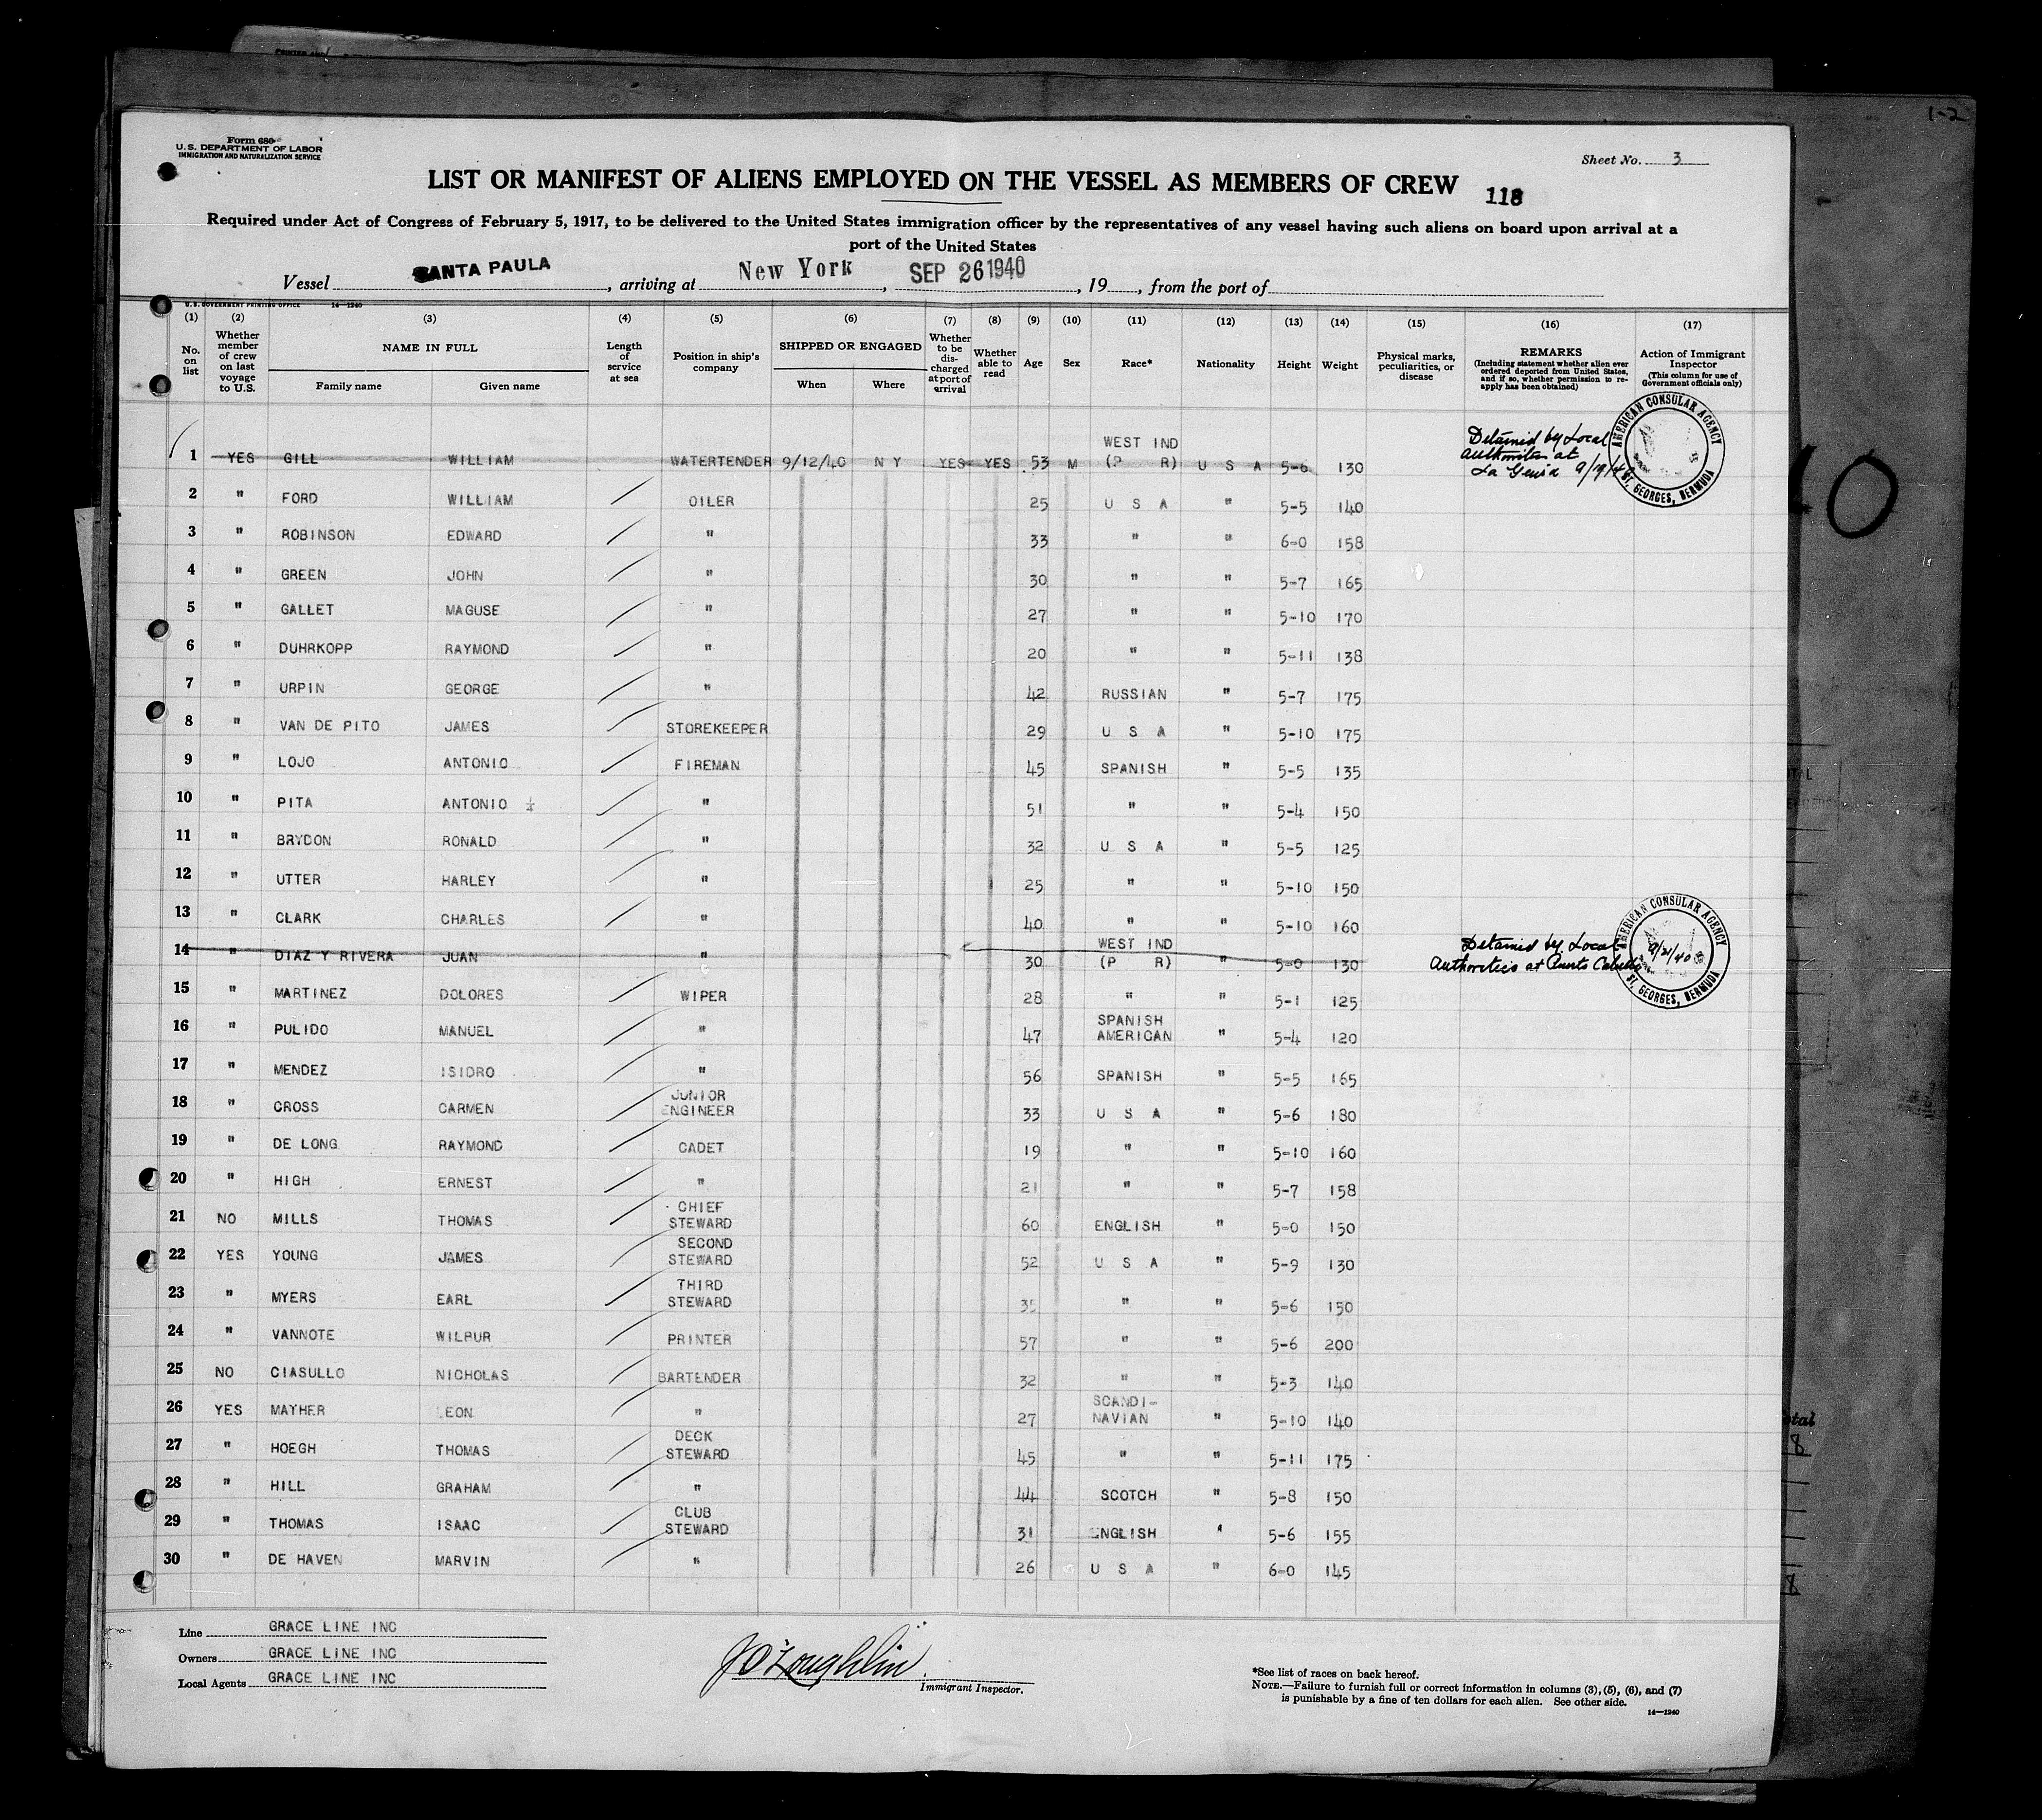 1-2
Form 680
U.S. DEPARTMENT OF LABOR
IMMIGRATION AND NATURALIZATION SERVICE
Sheet No. 3
LIST OR MANIFEST OF ALIENS EMPLOYED ON THE VESSEL AS MEMBERS OF CREW
118
Required under Act of Congress of February 5, 1917, to be delivered to the United States immigration officer by the representatives of any vessel having such aliens on board upon arrival at a
port of the United States
Vessel SANTA PAULA, arriving at New York, SEP 26 1940, 19, from the port of
U.S. GOVERNMENT PRINTING OFFICE 14—1940
(1) (2) (3) (4) (5) (6) (7) (8) (9) (10) (11) (12) (13) (14) (15) (16) (17)
No. on list
Whether member of crew on last voyage to U.S.
NAME IN FULL
Family name Given name
Length of service at sea
Position in ship's company
SHIPPED OR ENGAGED
When Where
Whether to be discharged at port of arrival
Whether able to read
Age
Sex
Race*
Nationality
Height
Weight
Physical marks, peculiarities, or disease
REMARKS
(Including statement whether alien ever ordered deported from United States, and if so, whether permission to reapply has been obtained)
Action of Immigrant Inspector
(This column for use of Government officials only)
1 YES GILL WILLIAM WATERTENDER 9/12/40 N Y YES YES 53 M WEST IND (P R) U S A 5-6 130 Detained by Local authorities at La Guaira 9/19/40
AMERICAN CONSULAR AGENCY ST. GEORGES, BERMUDA
2 " FORD WILLIAM OILER 25 U S A " 5-5 140
3 " ROBINSON EDWARD " 33 " " 6-0 158
4 " GREEN JOHN " 30 " " 5-7 165
5 " GALLET MAGUSE " 27 " " 5-10 170
6 " DUHRKOPP RAYMOND " 20 " " 5-11 138
7 " URPIN GEORGE " 42 RUSSIAN " 5-7 175
8 " VAN DE PITO JAMES STOREKEEPER 29 U S A " 5-10 175
9 " LOJO ANTONIO FIREMAN 45 SPANISH " 5-5 135
10 " PITA ANTONIO " 51 " " 5-4 150
11 " BRYDON RONALD " 32 U S A " 5-5 125
12 " UTTER HARLEY " 25 " " 5-10 150
13 " CLARK CHARLES " 40 " " 5-10 160
14 " DIAZ Y RIVERA JUAN " 30 WEST IND (P R) " 5-0 130 Detained by Local Authorities at Puerto Cabello
AMERICAN CONSULAR AGENCY 9/21/40 ST. GEORGES, BERMUDA
15 " MARTINEZ DOLORES WIPER 28 " " 5-1 125
16 " PULIDO MANUEL " 47 SPANISH AMERICAN " 5-4 120
17 " MENDEZ ISIDRO " 56 SPANISH " 5-5 165
18 " CROSS CARMEN JUNIOR ENGINEER 33 U S A " 5-6 180
19 " DE LONG RAYMOND CADET 19 " " 5-10 160
20 " HIGH ERNEST " 21 " " 5-7 158
21 NO MILLS THOMAS CHIEF STEWARD 60 ENGLISH " 5-0 150
22 YES YOUNG JAMES SECOND STEWARD 52 U S A " 5-9 130
23 " MYERS EARL THIRD STEWARD 35 " " 5-6 150
24 " VANNOTE WILBUR PRINTER 57 " " 5-6 200
25 NO CIASULLO NICHOLAS BARTENDER 32 " " 5-3 140
26 YES MAYHER LEON " 27 SCANDI-NAVIAN " 5-10 140
27 " HOEGH THOMAS DECK STEWARD 45 " " 5-11 175
28 " HILL GRAHAM " 44 SCOTCH " 5-8 150
29 " THOMAS ISAAC CLUB STEWARD 31 ENGLISH " 5-6 155
30 " DE HAVEN MARVIN " 26 U S A " 6-0 145
Line GRACE LINE INC
Owners GRACE LINE INC
Local Agents GRACE LINE INC
J O'Loughlin
Immigrant Inspector.
*See list of races on back hereof.
NOTE.—Failure to furnish full or correct information in columns (3), (5), (6), and (7)
is punishable by a fine of ten dollars for each alien. See other side.
14—1940